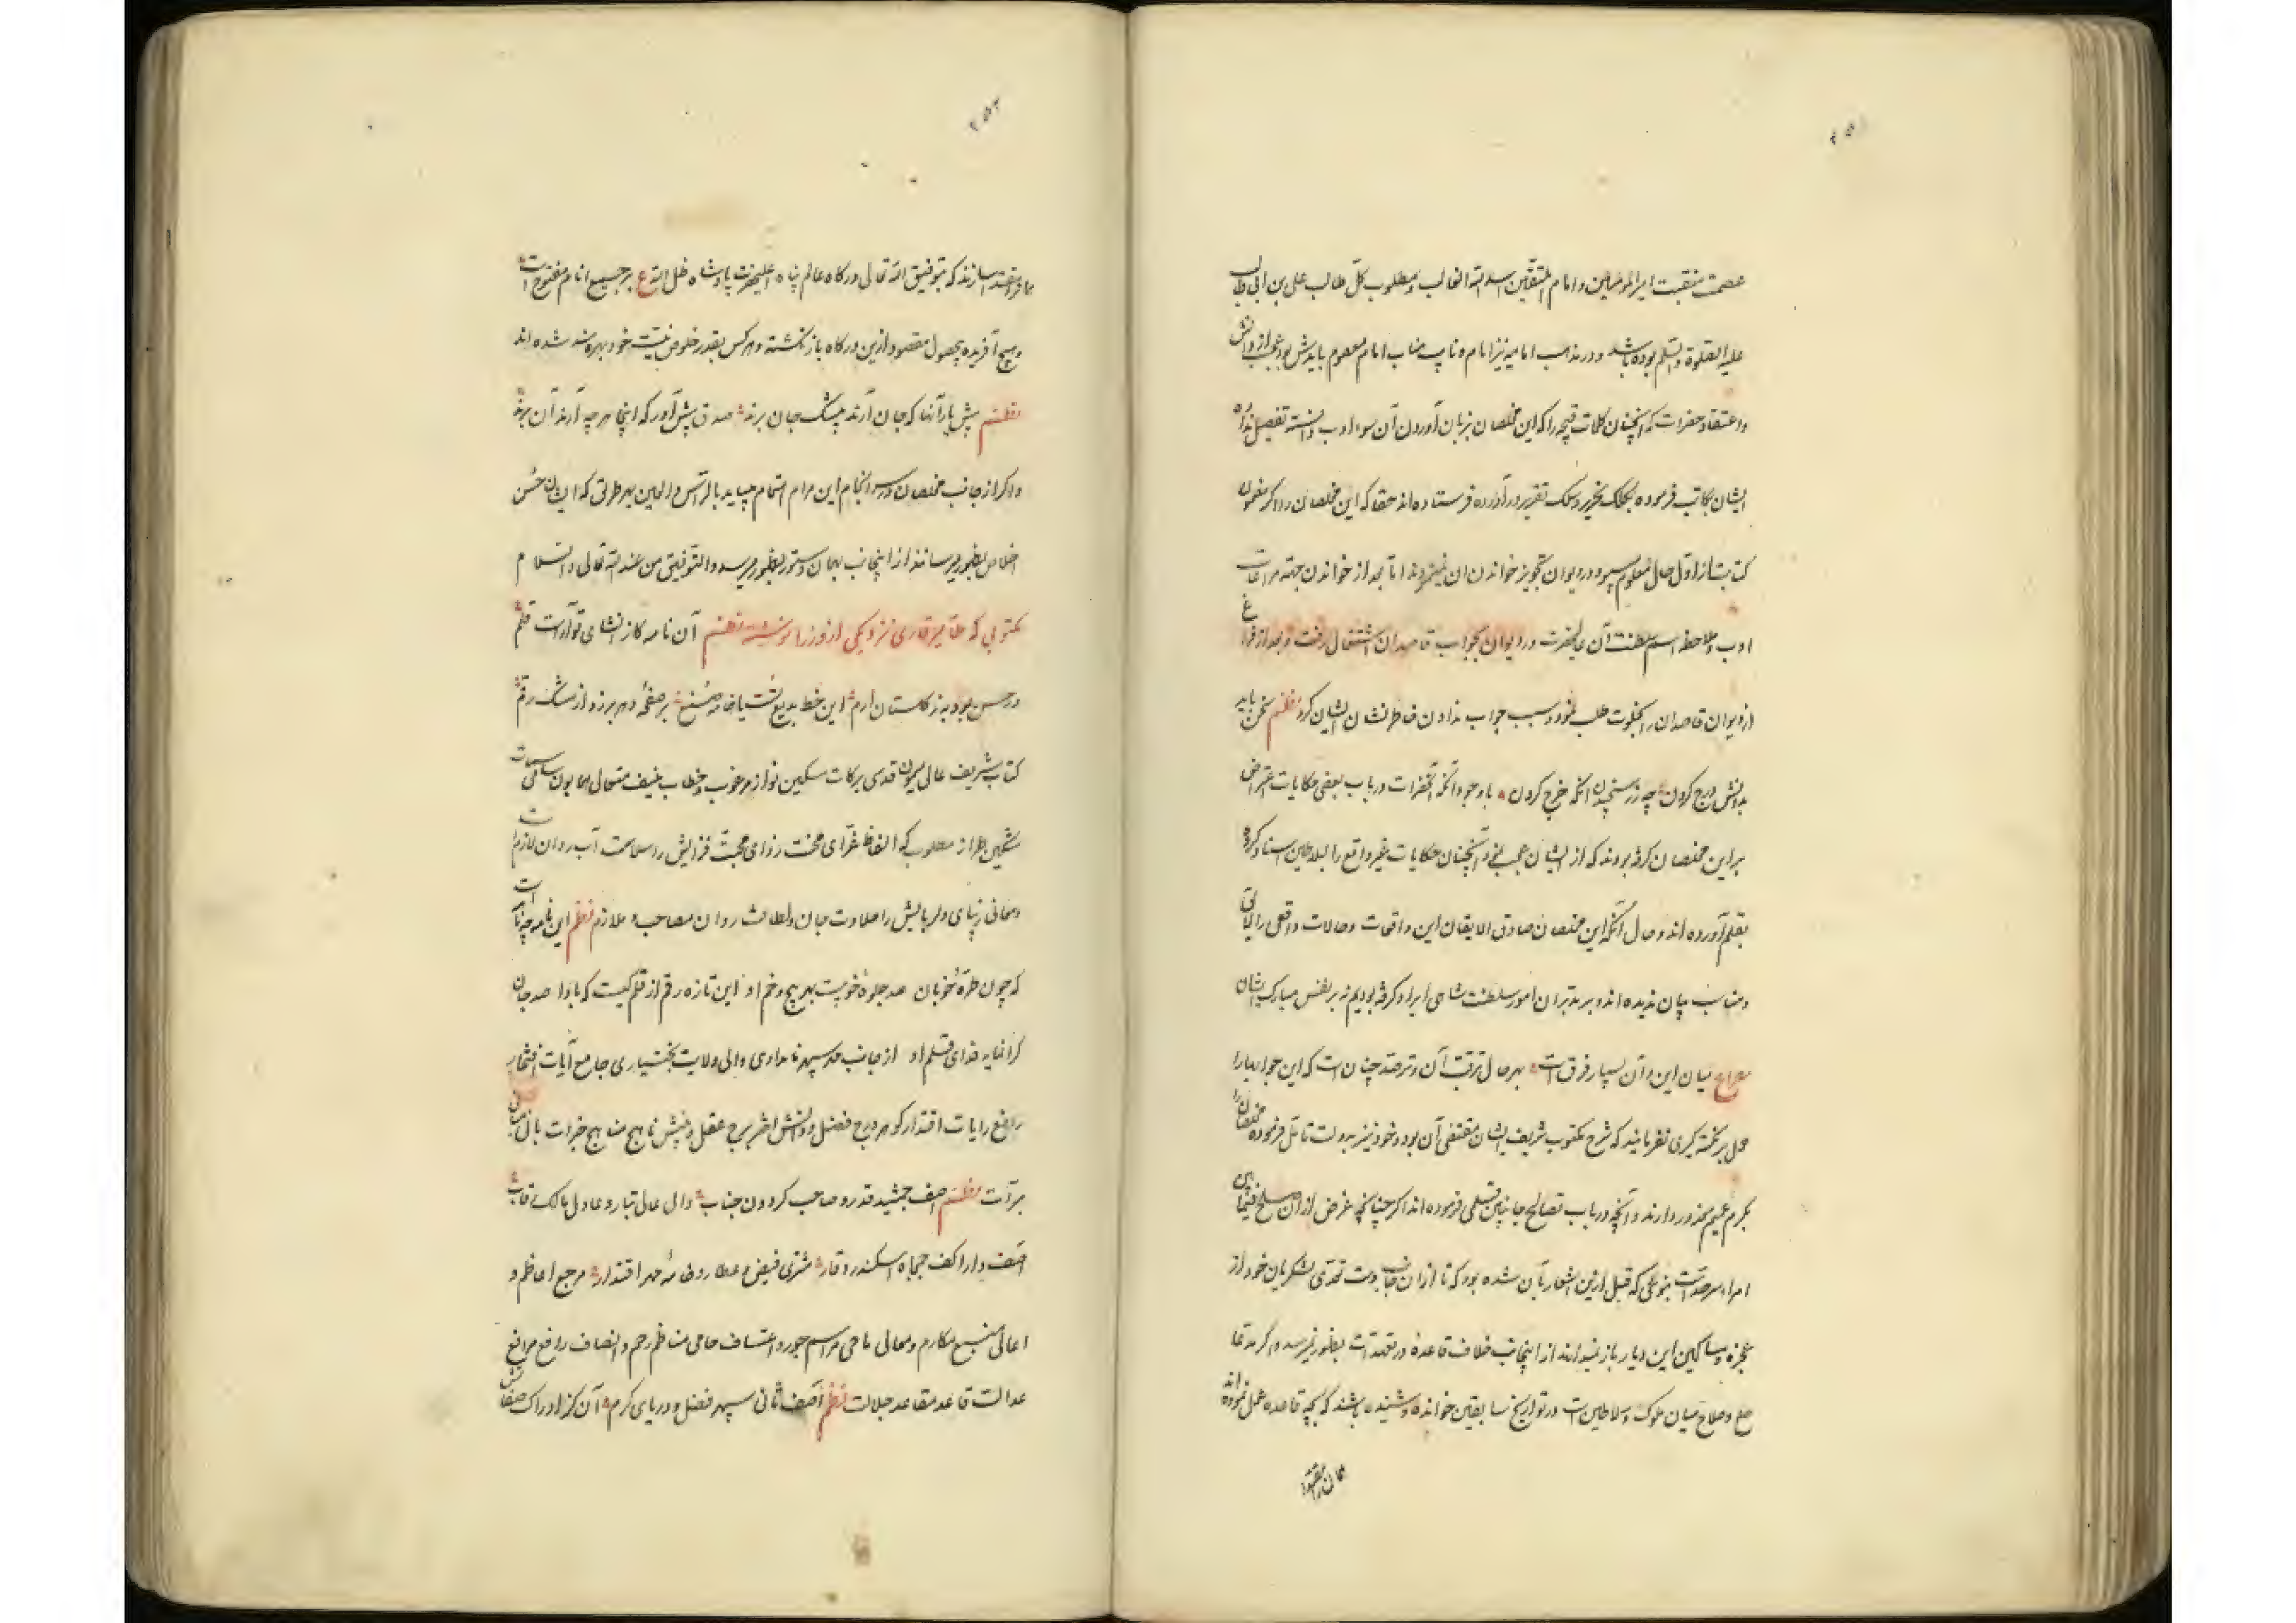 ۲۵۱
عصمت منقبت امیرالمؤمنین و امام المتقین اسد الله الغالب و مطلوب کل طالب علی بن ابی طالب
علیه الصلوة و السلم بوده باشد و در مذهب امامیه نیز امام و نایب مناب امام معصوم بایدش بود عجب از دانش
و اعتقاد حضرات که آنچنان کلمات قبیحه را که این مخلصان بزبان آوردن آن سوء ادب دانسته تفصیل نداد
ایشان بکاتب فرموده بکلک تحریر و سلک تقریر درآورده فرستاده‌اند حقا که این مخلصان را اگر مضمون
کتابت از اول حال معلوم میبود در دیوان تجویز خواندن آن نمینمودند اما بعد از خواندن جهة مراعات
ادب و ملاحظه اسم سلطنت آن عالیحضرت در دیوان بجواب قاصدان اشتغال رفت و بعد از فراغ
از دیوان قاصدان را بخلوت طلب نموده سبب جواب ندادن خاطرنشان ایشان کرد نظم سخن باید
بدانش درج کردن چو زر سنجیدن آنگه خرج کردن با وجود آنکه آنحضرات در باب بعضی حکایات اعتراض
بر این مخلصان کرفه بودند که از ایشان عجب نمود آنچنان حکایات غیر واقع را بسلاطین اسناد کرده
بقلم آورده‌اند و حال آنکه این مخلصان صادق الایقان این واقعات و حالات واقعی را لایق
و مناسب بیان ندیده‌اند و بر مدبران امور سلطنت شاهی ایراد کرفه بودیم نه بر نفس مبارک ایشان
مصراع میان این و آن بسیار فرق است بهرحال ترقب آن و ترصد چنان است که این جوابها را
حمل بر نکته گیری نفرمایند که شرح مکتوب شریف ایشان مقتضی آن بود و خود نیز بدولت تأمل فرموده مخلصان را
بکرم عمیم معذور دارند و آنچه در باب تصالح جانبین قلمی فرموده‌اند اگر چنانچه غرض ازان صلح فیمابین
امراء سرحد است بنوعی که قبل ازین اشعار بآن شده بود که تا ازان جانب دست تعدی لشکریان خود از
عجزه و مساکین این دیار باز نمیدارند از اینجانب خلاف قاعده در تعهدات بظهور نمیرسد و اگر مدعا
صلح و صلاح میان ملوک و سلاطین است در تواریخ سابقین خوانده و شنیده باشند که بچه قاعده عمل نموده‌اند
۲۵۲
که بتوفیق الله تعالی درگاه عالم پناه اعلیحضرت پادشاه ظل الله ع بر جمیع انام مفتوح است
و هیچ آفریده بحصول مقصود ازین درگاه باز نگشته و هرکس بقدر خلوص نیت خود بهره‌مند شده‌اند
نظم پیش یار آنها که جان آرند پیشک جان برند صدق پیش آور که اینجا هرچه آرند آن برند
و اگر از جانب مخلصان در سرانجام این مرام اهتمام میباید بالرأس والعین بهر طریق که ایشان حسن
اخلاص بظهور میرسانند از اینجانب بهمان دستور بظهور میرسد والتوفیق من عند الله تعالی والسلام
مکتوبی که ملا میر قاری نزد یکی از وزرا نوشته نظم آن نامه کز انشای تو آراست قلم
در حسن بود به ز گلستان ارم این خط بدیع خامه صنع بر صفحه دهر برزد از مشک رقم
کتاب شریف عالی میمون قدسی برکات مسکین نواز مرغوب و خطاب منیف متعال همایون
مشکین طراز مطلوب که الفاظ غرای محنت زدای محبت فزایش را سلاست آب روان لازم است
و معانی زیبای دلربایش را حلاوت جان و لطافت روان مصاحب و ملازم نظم این نامه چه نامه است
که چون طره خوبان صد جلوه خوبیست بهر پیچ و خم او این تازه رقم از قلم کیست که بادا صد جان
گرانمایه فدای قلم او از جانب سپهر نامداری والی ولایت بختیاری جامع آیات افتخار
رافع رایات اقتدار گوهر درج فضل و دانش اختر برج عقل و بینش ناهج مناهج خیرات
مبرات نظم آصف جمشید قدر و صاحب گردون جناب والی عالی تبار و عادل مالک رقاب
آصف دارا کف جمجاه اسکندر وقار مشتری فیض و عطارد خامه مهر اقتدار مرجع اعاظم و
اعالی منبع مکارم و معالی ماحی مراسم جور و اعتساف حامی مناظم رحم و انصاف رافع مرافع
عدالت قاعد مقاعد جلالت نظم آصف ثانی سپهر فضل و دریای کرم آن کز ادراک